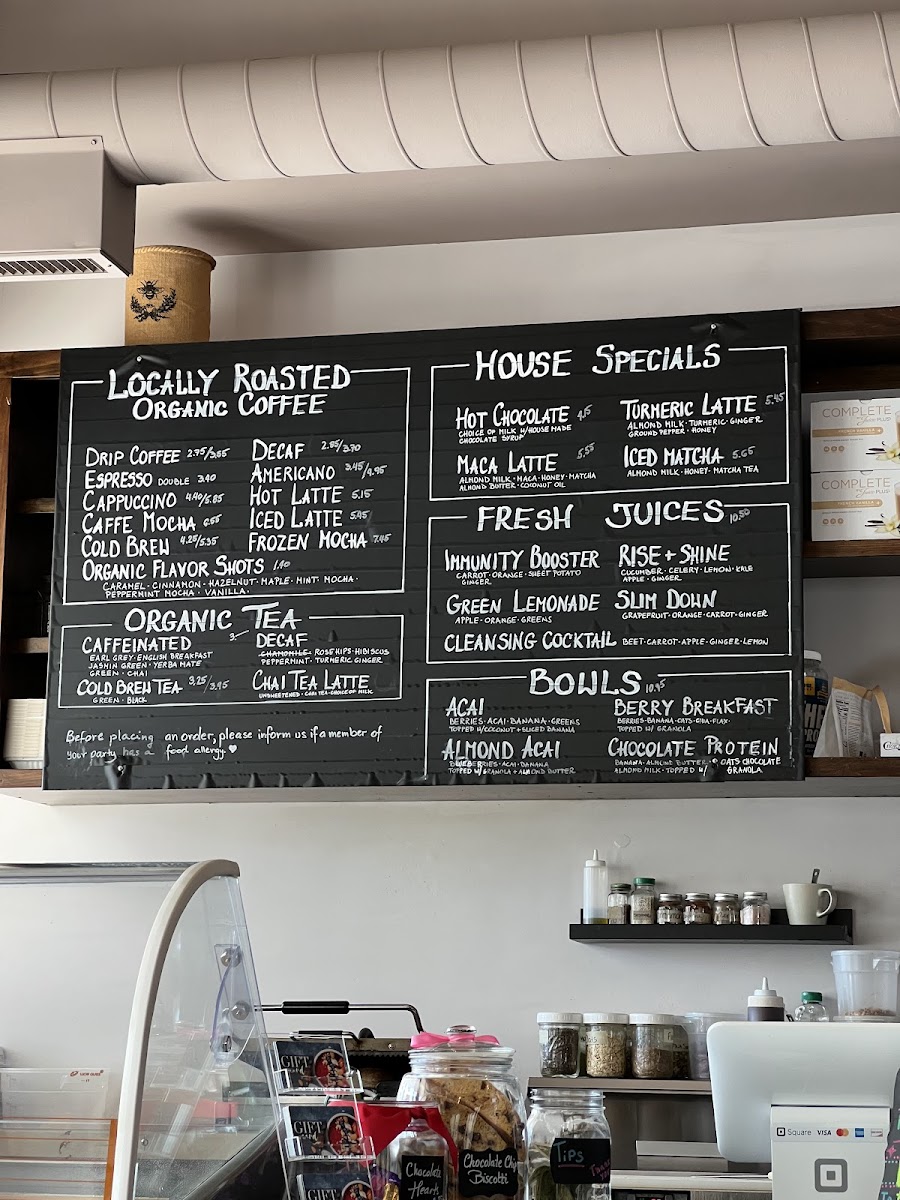 LOCALLY ROASTED
ORGANIC COFFEE
DRIP COFFEE 2.75/3.65
ESPRESSO DOUBLE 3.40
CAPPUCCINO 4.40/5.85
CAFFE MOCHA 6.55
COLD BREW 4.25/5.35
DECAF 2.85/3.70
AMERICANO 3.45/4.95
HOT LATTE 5.15
ICED LATTE 5.45
FROZEN MOCHA 7.45
ORGANIC FLAVOR SHOTS 1.40
CARAMEL · CINNAMON · HAZELNUT · MAPLE · MINT · MOCHA ·
PEPPERMINT MOCHA · VANILLA ·
ORGANIC TEA
CAFFEINATED 3
EARL GREY · ENGLISH BREAKFAST
JASMIN GREEN · YERBA MATE
GREEN · CHAI
COLD BREW TEA 3.25/3.95
GREEN · BLACK
DECAF
CHAMOMILE · ROSEHIPS · HIBISCUS
PEPPERMINT · TURMERIC GINGER
CHAI TEA LATTE
UNSWEETENED · CHAI TEA · CHOICE OF MILK
Before placing an order, please inform us if a member of
your party has a food allergy. ♥
HOUSE SPECIALS
HOT CHOCOLATE 4.15
CHOICE OF MILK W/HOUSE MADE
CHOCOLATE SYRUP
MACA LATTE 5.55
ALMOND MILK · MACA · HONEY · MATCHA
ALMOND BUTTER · COCONUT OIL
TURMERIC LATTE 5.45
ALMOND MILK · TURMERIC · GINGER
GROUND PEPPER · HONEY
ICED MATCHA 5.65
ALMOND MILK · HONEY · MATCHA TEA
FRESH JUICES 10.50
IMMUNITY BOOSTER
CARROT · ORANGE · SWEET POTATO
GINGER
GREEN LEMONADE
APPLE · ORANGE · GREENS
RISE + SHINE
CUCUMBER · CELERY · LEMON · KALE
APPLE · GINGER
SLIM DOWN
GRAPEFRUIT · ORANGE · CARROT · GINGER
CLEANSING COCKTAIL BEET · CARROT · APPLE · GINGER · LEMON
BOWLS 10.95
ACAI
BERRIES · ACAI · BANANA · GREENS
TOPPED W/COCONUT + SLICED BANANA
ALMOND ACAI
BLUEBERRIES · ACAI · BANANA
TOPPED W/GRANOLA + ALMOND BUTTER
BERRY BREAKFAST
BERRIES · BANANA · OATS · CHIA · FLAX ·
TOPPED W/ GRANOLA
CHOCOLATE PROTEIN
BANANA · ALMOND BUTTER · OATS CHOCOLATE
ALMOND MILK · TOPPED W/ GRANOLA
COMPLETE
COMPLETE
GIFT
GIFT
GIFT
Chocolate
Hearts
Chocolate Chip
Biscotti
Tips
Square VISA